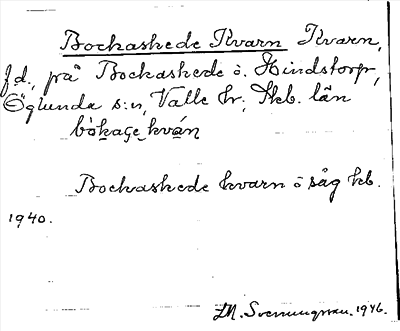 Bockaskede Kvarn Kvarn,
f.d., på Bockaskede ö. Hindstorp,
Öglunda s:n, Valle hr; Skb. län
bòkaςe kván
Bockaskede kvarn ö såg kb.
1940.
M. Svenungsson. 1946.